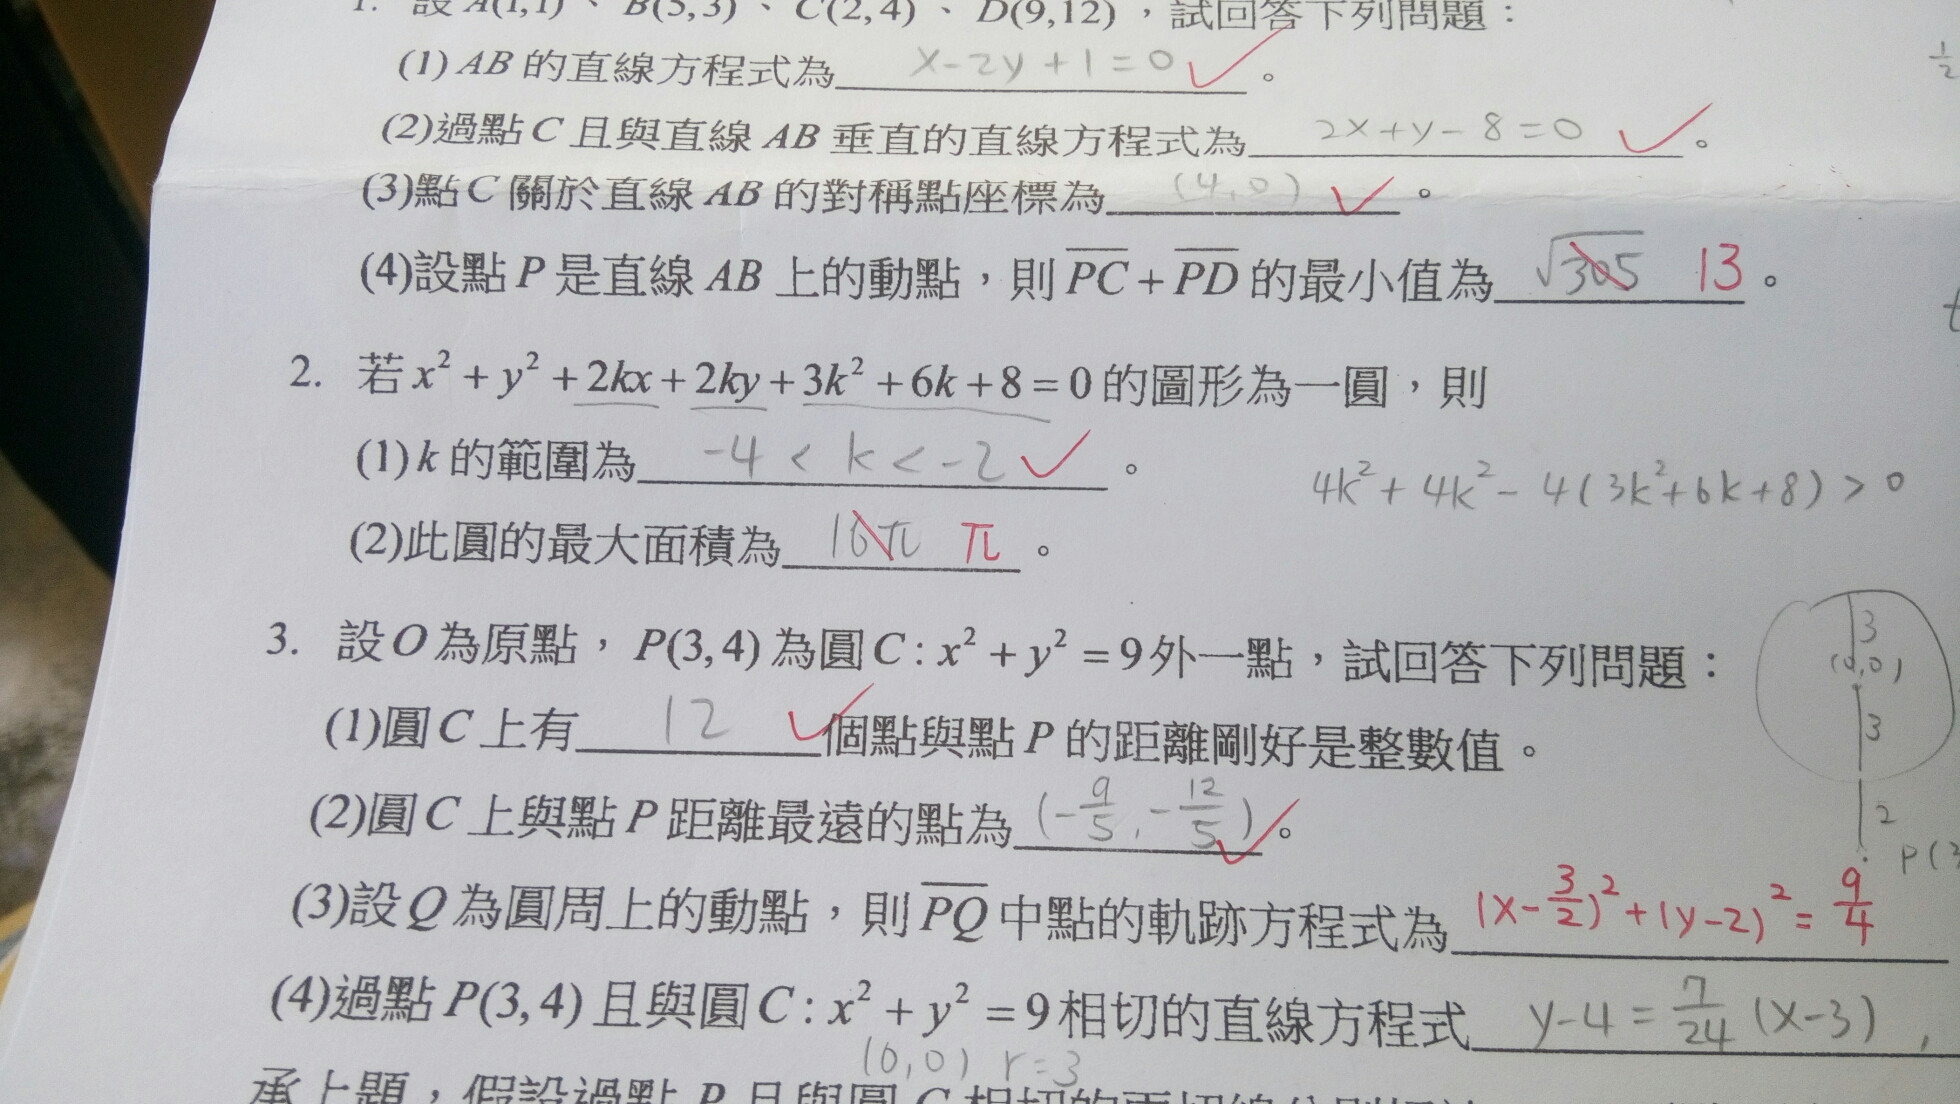 1. 設 A(1,1)、B(5,3)、C(2,4)、D(9,12),試回答下列問題:
(1) AB 的直線方程式為 x-2y+1=0 ✓。
(2)過點 C 且與直線 AB 垂直的直線方程式為 2x+y-8=0 ✓。
(3)點 C 關於直線 AB 的對稱點座標為 (4,0) ✓。
(4)設點 P 是直線 AB 上的動點,則 PC + PD 的最小值為 √305 13。
2. 若 x² + y² + 2kx + 2ky + 3k² + 6k + 8 = 0 的圖形為一圓,則
(1) k 的範圍為 -4 < k < -2 ✓。
4k²+4k²-4(3k²+6k+8)>0
(2)此圓的最大面積為 16π π。
3. 設 O 為原點,P(3,4) 為圓 C : x² + y² = 9 外一點,試回答下列問題:
3
(0,0)
3
2
P(3
(1)圓 C 上有 12 ✓個點與點 P 的距離剛好是整數值。
(2)圓 C 上與點 P 距離最遠的點為 (-9/5,-12/5) ✓。
(3)設 Q 為圓周上的動點,則 PQ 中點的軌跡方程式為 (x-3/2)²+(y-2)²=9/4
(4)過點 P(3,4) 且與圓 C : x² + y² = 9 相切的直線方程式 y-4=7/24(x-3),
(0,0) r=3
承上題,假設過點 P 且與圓 C 相切的兩切線